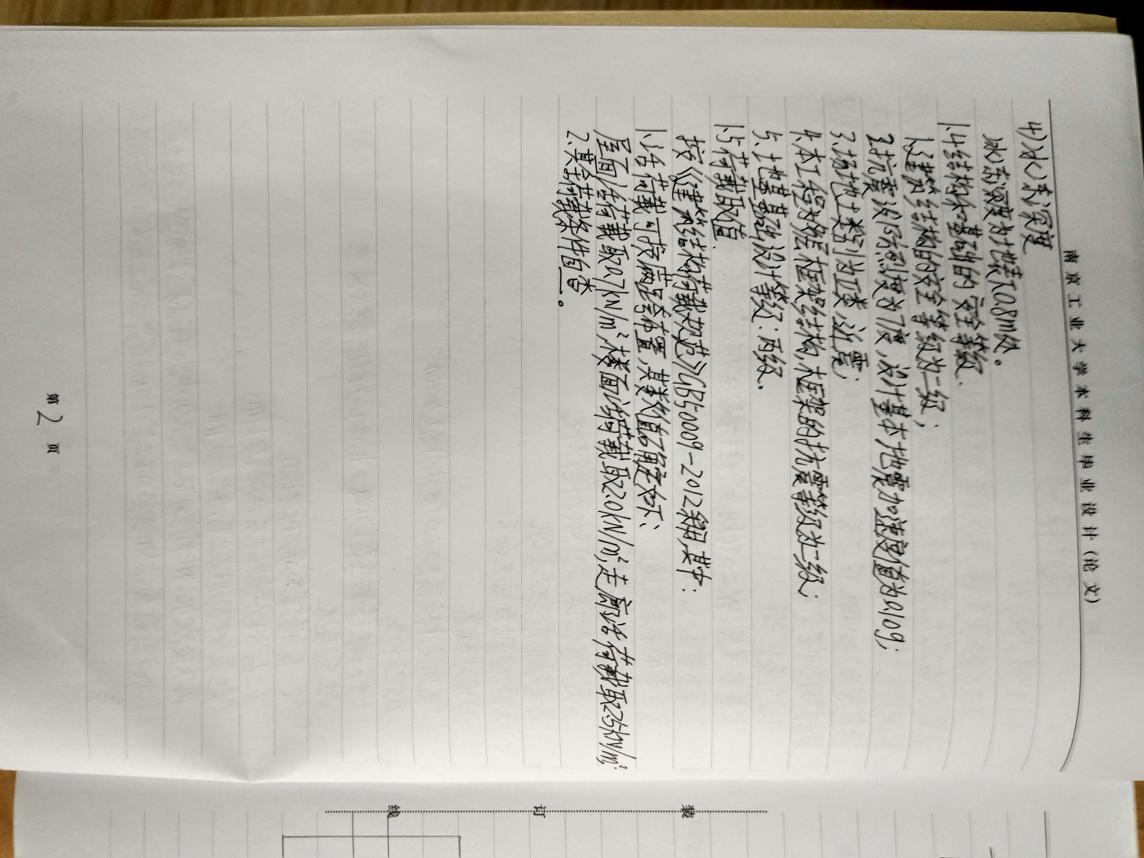 南京工业大学本科生毕业设计(论文)
4)冰冻深度
冰冻深度为地表下0.8m处。
1.4结构和基础的安全等级
1.建筑结构的安全等级为二级;
2.抗震设防烈度为7度,设计基本地震加速度值为0.10g;
3.场地土类别为Ⅱ类,近震;
4.本工程为多层框架结构,框架的抗震等级为二级;
5.地基基础设计等级:丙级、
1.5荷载取值
按《建筑结构荷载规范》GB50009-2012采用 其中:
1.活荷载可按满跨布置,其数值确定如下:
屋面活荷载取0.7kN/m²,楼面活荷载取2.0kN/m²,走廊活荷载取2.5kN/m²;
2.其余荷载条件自查。
第2页
装
订
线